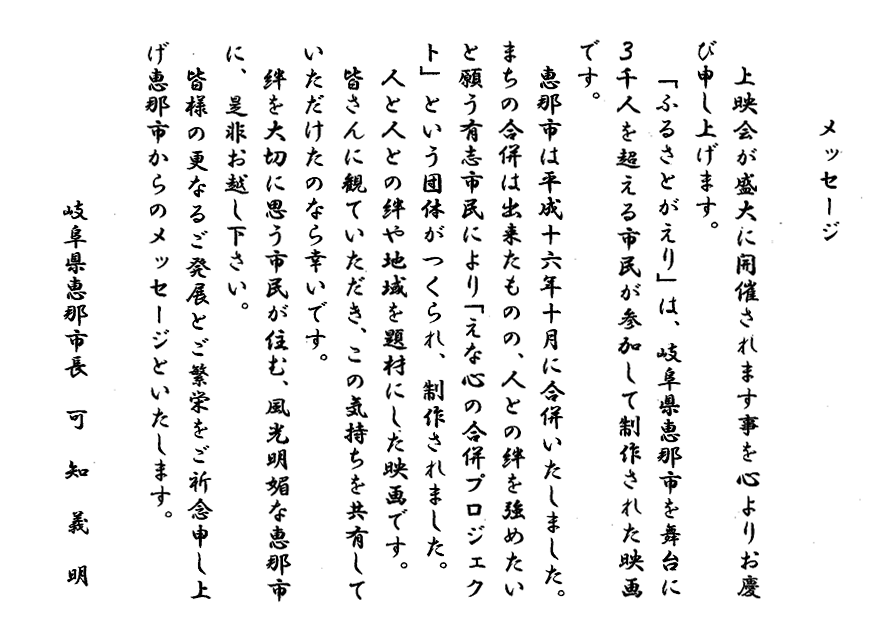 メッセージ
上映会が盛大に開催されます事を心よりお慶
び申し上げます。
「ふるさとがえり」は、岐阜県恵那市を舞台に
３千人を超える市民が参加して制作された映画
です。
恵那市は平成十六年十月に合併いたしました。
まちの合併は出来たものの、人との絆を強めたい
と願う有志市民により「えな心の合併プロジェク
ト」という団体がつくられ、制作されました。
人と人との絆や地域を題材にした映画です。
皆さんに観ていただき、この気持ちを共有して
いただけたのなら幸いです。
絆を大切に思う市民が住む、風光明媚な恵那市
に、是非お越し下さい。
皆様の更なるご発展とご繁栄をご祈念申し上
げ恵那市からのメッセージといたします。
岐阜県恵那市長　可　知　義　明